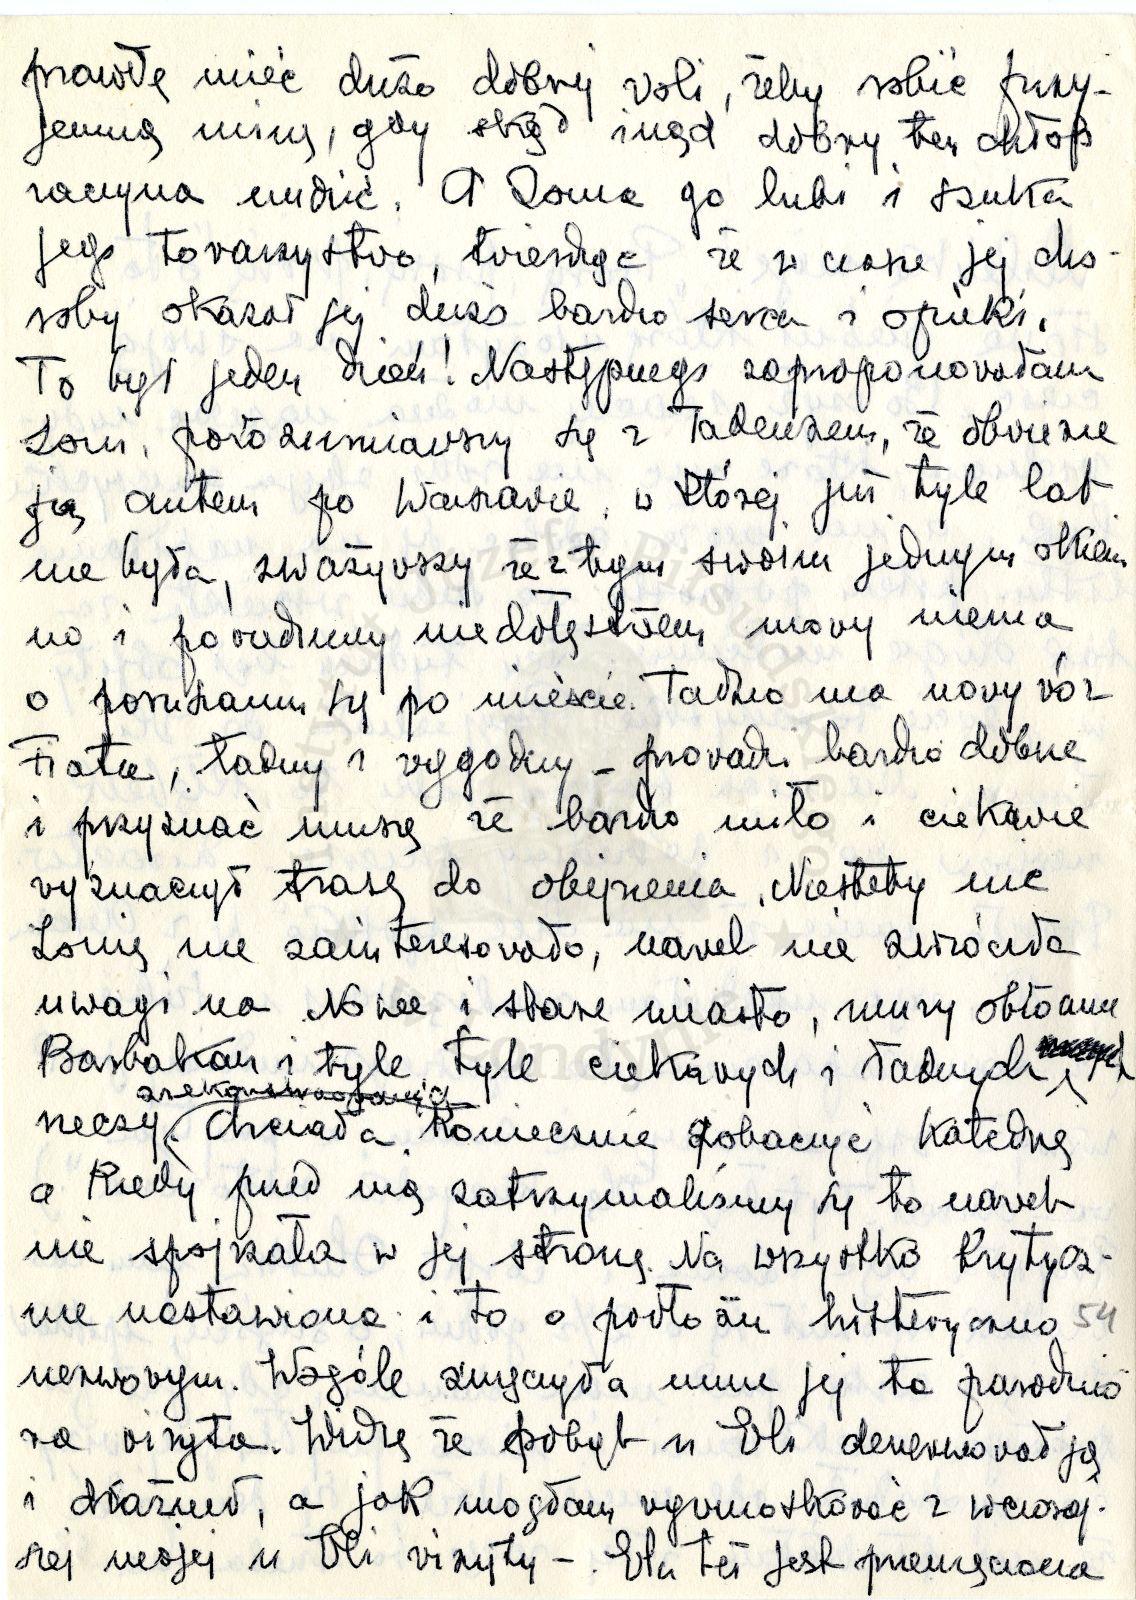 prawdę mieć dużo dobrej voli, żeby robić przy-
jemną minę, gdy skąd inąd dobry ten chłop
zaczyna nudzić. A Zonia go lubi i szuka
jego towarzystwa, twierdząc że w czasie jej cho-
roby okazał jej dużo bardzo serca i opieki.
To był jeden dzień! Następnego zaproponowałam
Zoni, porozumiawszy się z Tadeuszem, że obwiezie
ją autem po Warszawie, w której już tyle lat
nie była, zważywszy że z tym swoim jednym okiem
no i poradnym niedołęstwem mowy niema
o poruszaniu się po mieście. Tadzio ma nowy wóz
Fiata, ładny i wygodny – prowadzi bardzo dobrze
i przyznać muszę że bardzo miło i ciekawie
wyznaczył trasę do obejrzenia. Niestety nic
Zonię nie zainteresowało, nawet nie zwróciła
uwagi na Nowe i stare miasto, mury obronne
Barbakan i tyle tyle ciekawych i ładnych
zrekonstruowanych
rzeczy. Chciała koniecznie zobaczyć Katedrę
a kiedy przed nią zatrzymaliśmy się to nawet
nie spojrzała w jej stronę. Na wszystko krytycz-
nie nastawiona i to o podłożu histeryczno 54
nerwowym. Wogóle zmęczyła mnie jej ta parodnio
wa wizyta. Widzę że pobyt u Eli denerwował ją
i drażnił, a jak mogłam wywnioskować z wczoraj-
szej mojej u Eli wizyty – Ela też jest przemęczona